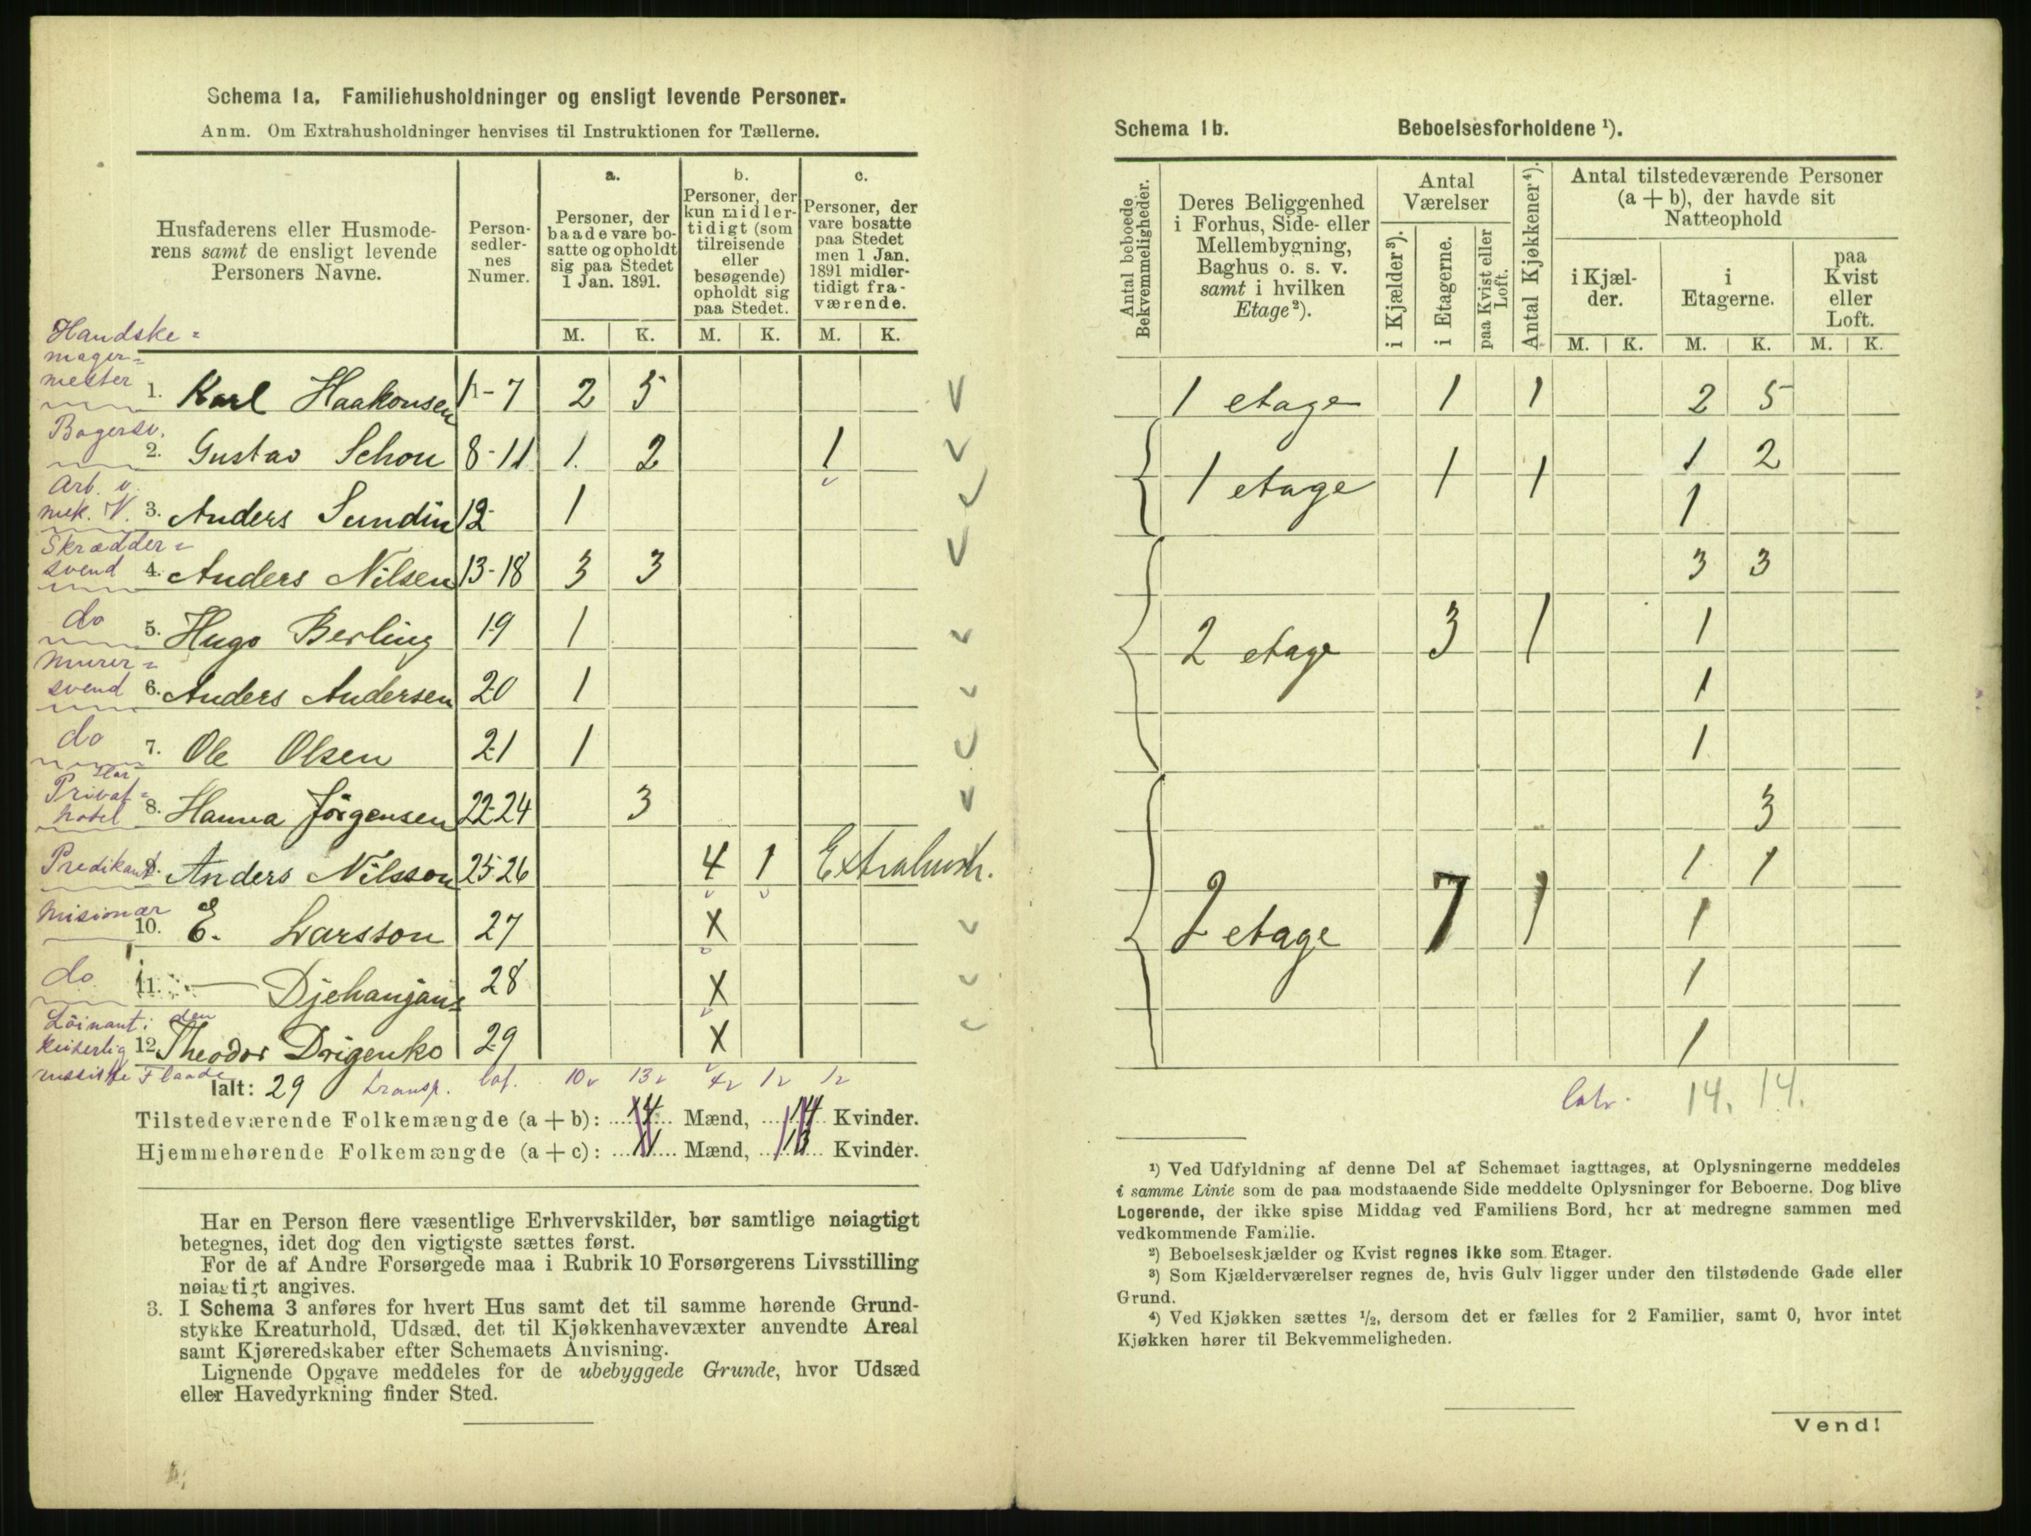 Schema 1a. Familiehusholdninger og ensligt levende Personer.
Anm. Om Extrahusholdninger henvises til Instruktionen for Tællerne.
Husfaderens eller Husmoderens samt de ensligt levende Personers Navne.
Personsedlernes Numer.
a.
Personer, der baade vare bosatte og opholdt sig paa Stedet 1 Jan. 1891.
b.
Personer, der kun midlertidigt (som tilreisende eller besøgende) opholdt sig paa Stedet.
c.
Personer, der vare bosatte paa Stedet men 1 Jan. 1891 midlertidigt fraværende.
M. K. M. K. M. K.
Handske=
mager=
mester 1. Karl Haakonsen 1-7 2 5
Bagersv. 2. Gustav Schou 8-11 1 2 1
Arb. v.
mek. V. 3. Anders Sundin 12 1
Skrædder=
svend 4. Anders Nilsen 13-18 3 3
do 5. Hugo Berling 19 1
Murer=
svend 6. Anders Andersen 20 1
do 7. Ole Olsen 21 1
Har
Privat=
hotel 8. Hanna Jörgensen 22-24 3
Predikant 9. Anders Nilsson 25-26 4 1 Extrahush.
Misionær 10. E. Larsson 27 X
do 11. — Djehanjans 28 X
Löinant i den
keiserlig 12. Theodor Drigenko 29 X
russiske Flaade
Ialt: 29 transp. lat. 10 13 4 1 1
Tilstedeværende Folkemængde (a + b): 14 Mænd, 14 Kvinder.
Hjemmehørende Folkemængde (a + c): 11 Mænd, 13 Kvinder.
Har en Person flere væsentlige Erhvervskilder, bør samtlige nøiagtigt
betegnes, idet dog den vigtigste sættes først.
For de af Andre Forsørgede maa i Rubrik 10 Forsørgerens Livsstilling
nøiagtigt angives.
3. I Schema 3 anføres for hvert Hus samt det til samme hørende Grund-
stykke Kreaturhold, Udsæd, det til Kjøkkenhavevæxter anvendte Areal
samt Kjøreredskaber efter Schemaets Anvisning.
Lignende Opgave meddeles for de ubebyggede Grunde, hvor Udsæd
eller Havedyrkning finder Sted.
Schema 1b. Beboelsesforholdene ¹).
Antal beboede Bekvemmeligheder.
Deres Beliggenhed i Forhus, Side- eller Mellembygning, Baghus o. s. v. samt i hvilken Etage²).
Antal Værelser
i Kjælder³).
i Etagerne.
paa Kvist eller Loft.
Antal Kjøkkener⁴).
Antal tilstedeværende Personer (a + b), der havde sit Natteophold
i Kjælder.
i Etagerne.
paa Kvist eller Loft.
M. K. M. K. M. K.
1 etage 1 1 2 5
1 2
1 etage 1 1
1
3 3
2 etage 3 1 1
1
1
3
1 1
2 etage 7 1 1
1
1
14. 14.
¹) Ved Udfyldning af denne Del af Schemaet iagttages, at Oplysningerne meddeles
i samme Linie som de paa modstaaende Side meddelte Oplysninger for Beboerne. Dog blive
Logerende, der ikke spise Middag ved Familiens Bord, her at medregne sammen med
vedkommende Familie.
²) Beboelseskjælder og Kvist regnes ikke som Etager.
³) Som Kjælderværelser regnes de, hvis Gulv ligger under den tilstødende Gade eller
Grund.
⁴) Ved Kjøkken sættes ½, dersom det er fælles for 2 Familier, samt 0, hvor intet
Kjøkken hører til Bekvemmeligheden.
Vend!